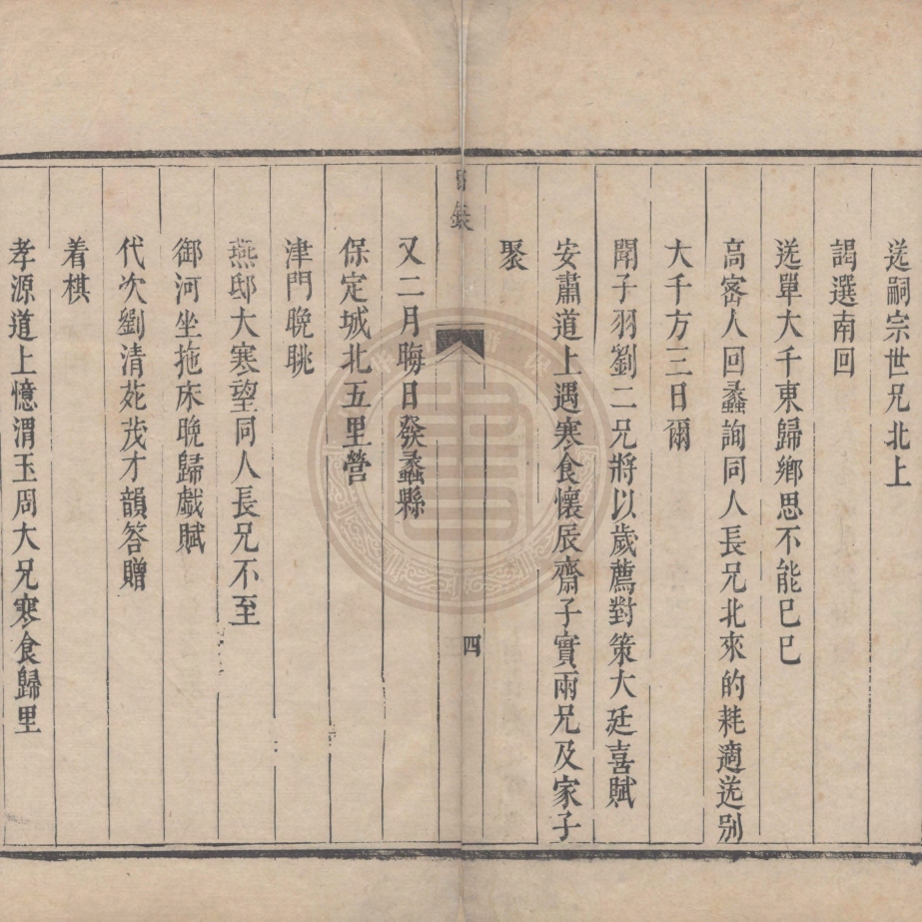 送嗣宗世兄北上
謁選南回
送單大千東歸鄉思不能已已
高密人回蠡詢同人長兄北來的耗適送别
大千方三日爾
聞子羽劉二兄將以歲薦對策大廷喜賦
安肅道上遇寒食懷辰齋子實兩兄及家子
聚
目錄
四
又二月晦日發蠡縣
保定城北五里營
津門晚眺
燕邸大寒望同人長兄不至
御河坐拖床晚歸戯賦
代次劉清茺茂才韻答贈
着棋
孝源道上憶渭玉周大兄寒食歸里